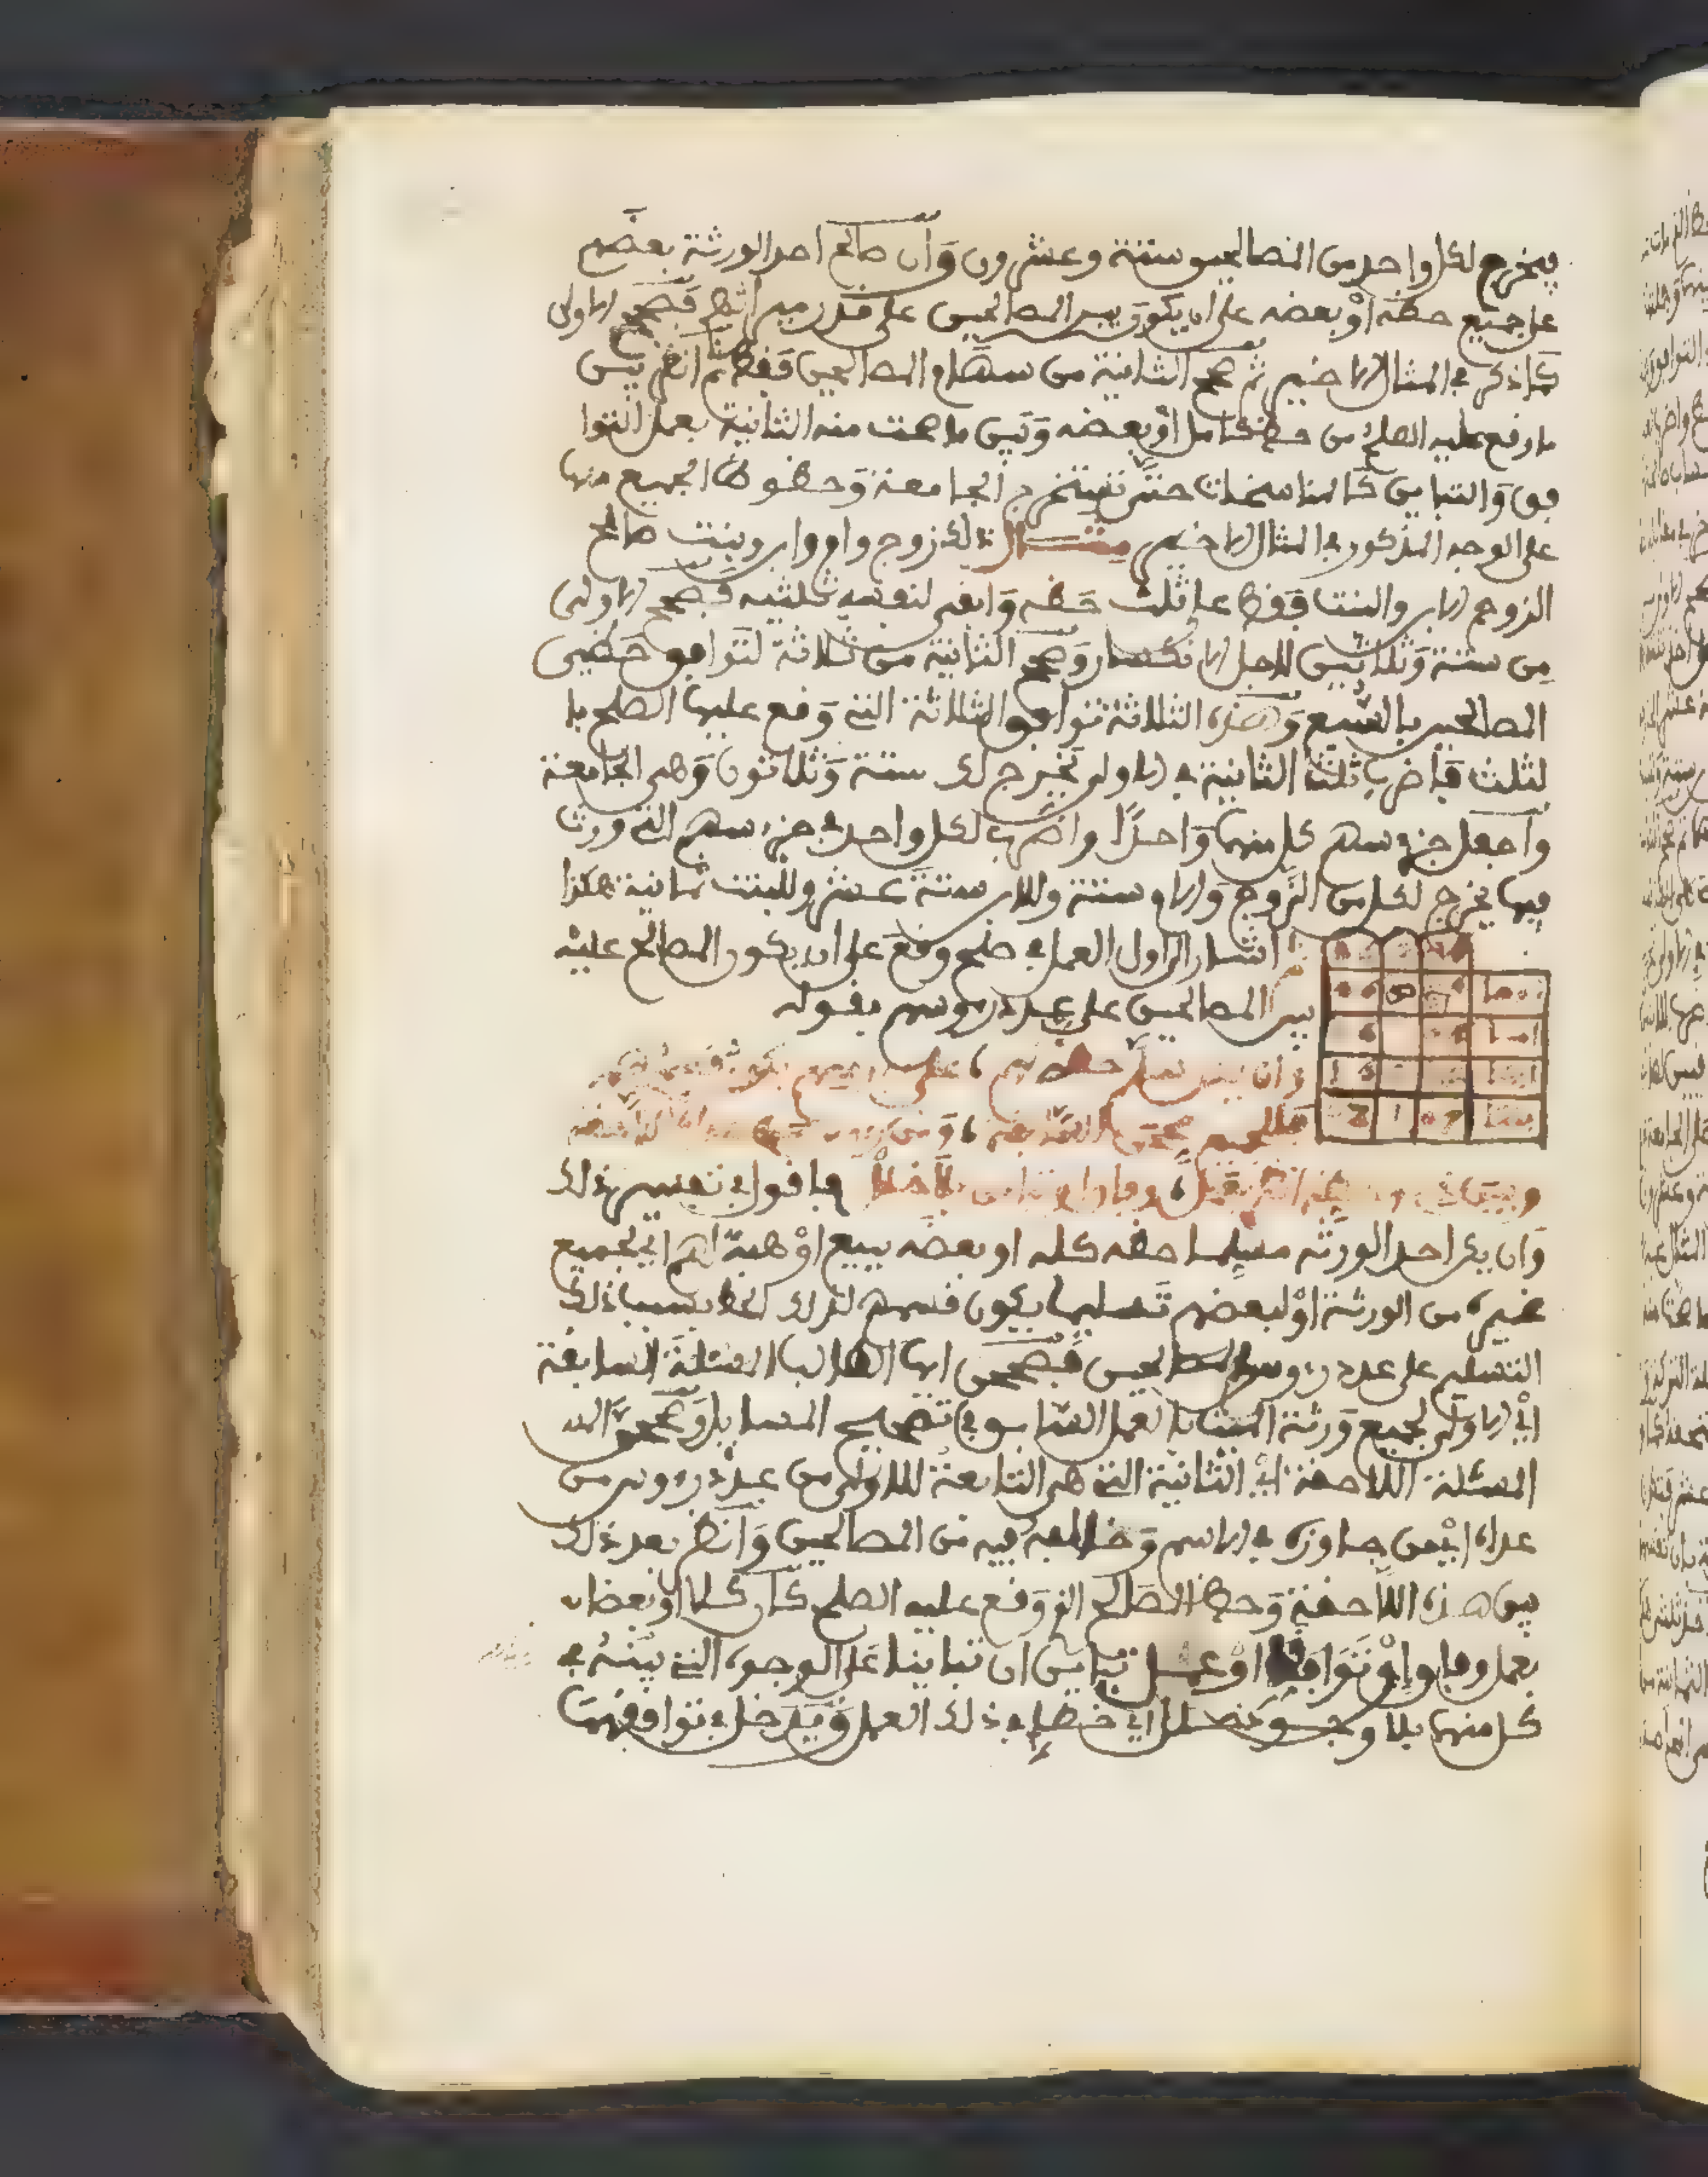 فيخرج لكل واحد من المصالحين ستة وعشرون وان صالح احد الورثة بعضهم
على جميع حظه أو بعضه على ان يكون بين المصالحين على قدر ميراثهم فصحح الاولى
كما ذكر في المثال الاخير ثم صحح الثانية من سهام المصالحين فقط ثم انظر بين
ما وقع عليه الصلح من حظ كامل أو بعضه وبين ما صحت منه الثانية بعمل التوا
فق والتباين كالمناسخات حتى تستخرج الجامعة وحظوظ الجميع منها
على الوجه المذكور في المثال الاخير مثال ذلك زوج وام وابن وبنت صالح
الزوج الابن والبنت فقط على ثلث حظه وابقى لنفسه ثلثيه فصحح الاولى
من ستة وثلاثين لاجل الانكسار وصح الثانية من ثلاثة لتوافق حظي
المصالحين بالسبع وهذه الثلاثة توافق الثلاثة التي وقع عليها الصلح با
لثلث فاضرب ثلث الثانية في الاولى تخرج لك ستة وثلاثون وهي الجامعة
واجعل جزء سهم كل منهما واحدا واضرب لكل واحد في جزء سهم التي ورث
فيها يخرج لكل من الزوج والام ستة وللابن ستة عشر وللبنت ثمانية هكذا
ثم اشار الى اول العمل في صلح وقع على ان يكون المصالح عليه
بين المصالحين على عدد رءوسهم بقوله
وان يكن مسلم حظه لهم على رءوسهم يكون قسمهم
فللجميع صححن السابقة ومن رءوس
وبين حظ انظر بعمل وفاق او تباين بلا خلل فاقول في تفسير ذلك
وان يكن احد الورثة مسلما حظه كله او بعضه ببيع أو هبة لهم اي لجميع
غيره من الورثة أو لبعضهم تسليما يكون قسمهم لذلك الحظ بسبب ذلك
التسليم على عدد رءوس المصالحين فصححن ايها الطالب المسئلة السابقة
اي الاولى لجميع ورثة المسئلة بالعمل السابق في تصحيح المسايل وصححن
المسئلة اللاحقة اي الثانية التي هي التابعة للاولى من عدد رءوس من
عداه اي من جاوزه في الاسم وخالفه فيه من المصالحين وانظر بعد ذلك
بين هذه اللاحقة وحظ المصالح الذي وقع عليه الصلح كان كلا او بعضا
بعمل وفاق ان توافقا أو عمل تباين ان تباينا على الوجوه التي بينته في
كل منهما بلا وجود خلل اي خطإ في ذلك العمل ويدخل في توافقهما